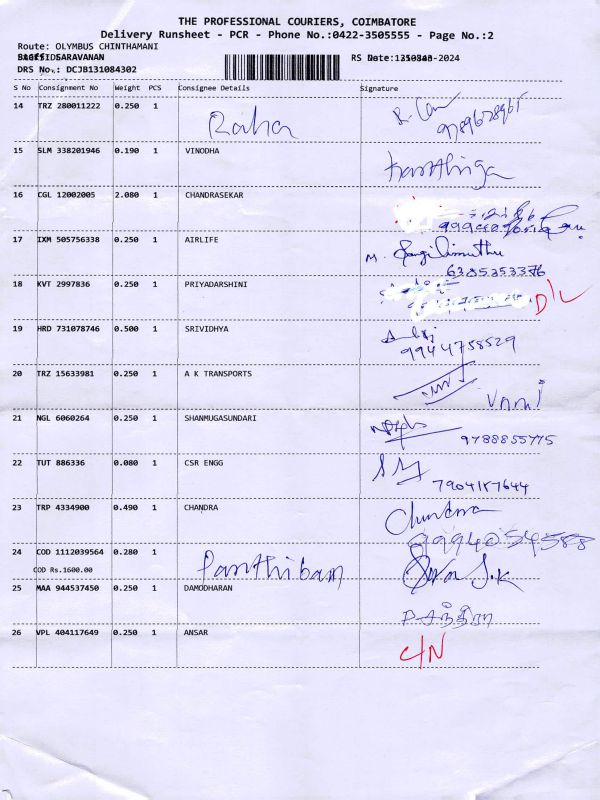 THE PROFESSIONAL COURIERS, COIMBATORE
Delivery Runsheet - PCR - Phone No.:0422-3505555 - Page No.:2
Route: OLYMBUS CHINTHAMANI
SARAVANAN RS Date: -2024
DRS No.: DCJB131084302
S No Consignment No Weight PCS Consignee Details Signature
14 TRZ 280011222 0.250 1 Raha
9789678965
15 SLM 338201946 0.190 1 VINODHA Karthiga
16 CGL 12002005 2.080 1 CHANDRASEKAR
17 IXM 505756338 0.250 1 AIRLIFE M. Sangilimuthu
6385353376
18 KVT 2997836 0.250 1 PRIYADARSHINI D/L
19 HRD 731078746 0.500 1 SRIVIDHYA
9944758529
20 TRZ 15633981 0.250 1 A K TRANSPORTS
21 NGL 6060264 0.250 1 SHANMUGASUNDARI
9788855775
22 TUT 886336 0.080 1 CSR ENGG
7904187644
23 TRP 4334900 0.490 1 CHANDRA Chandra
9994054588
24 COD 1112039564 0.280 1 Parthiban
COD Rs.1600.00
25 MAA 944537450 0.250 1 DAMODHARAN
26 VPL 404117649 0.250 1 ANSAR C/N